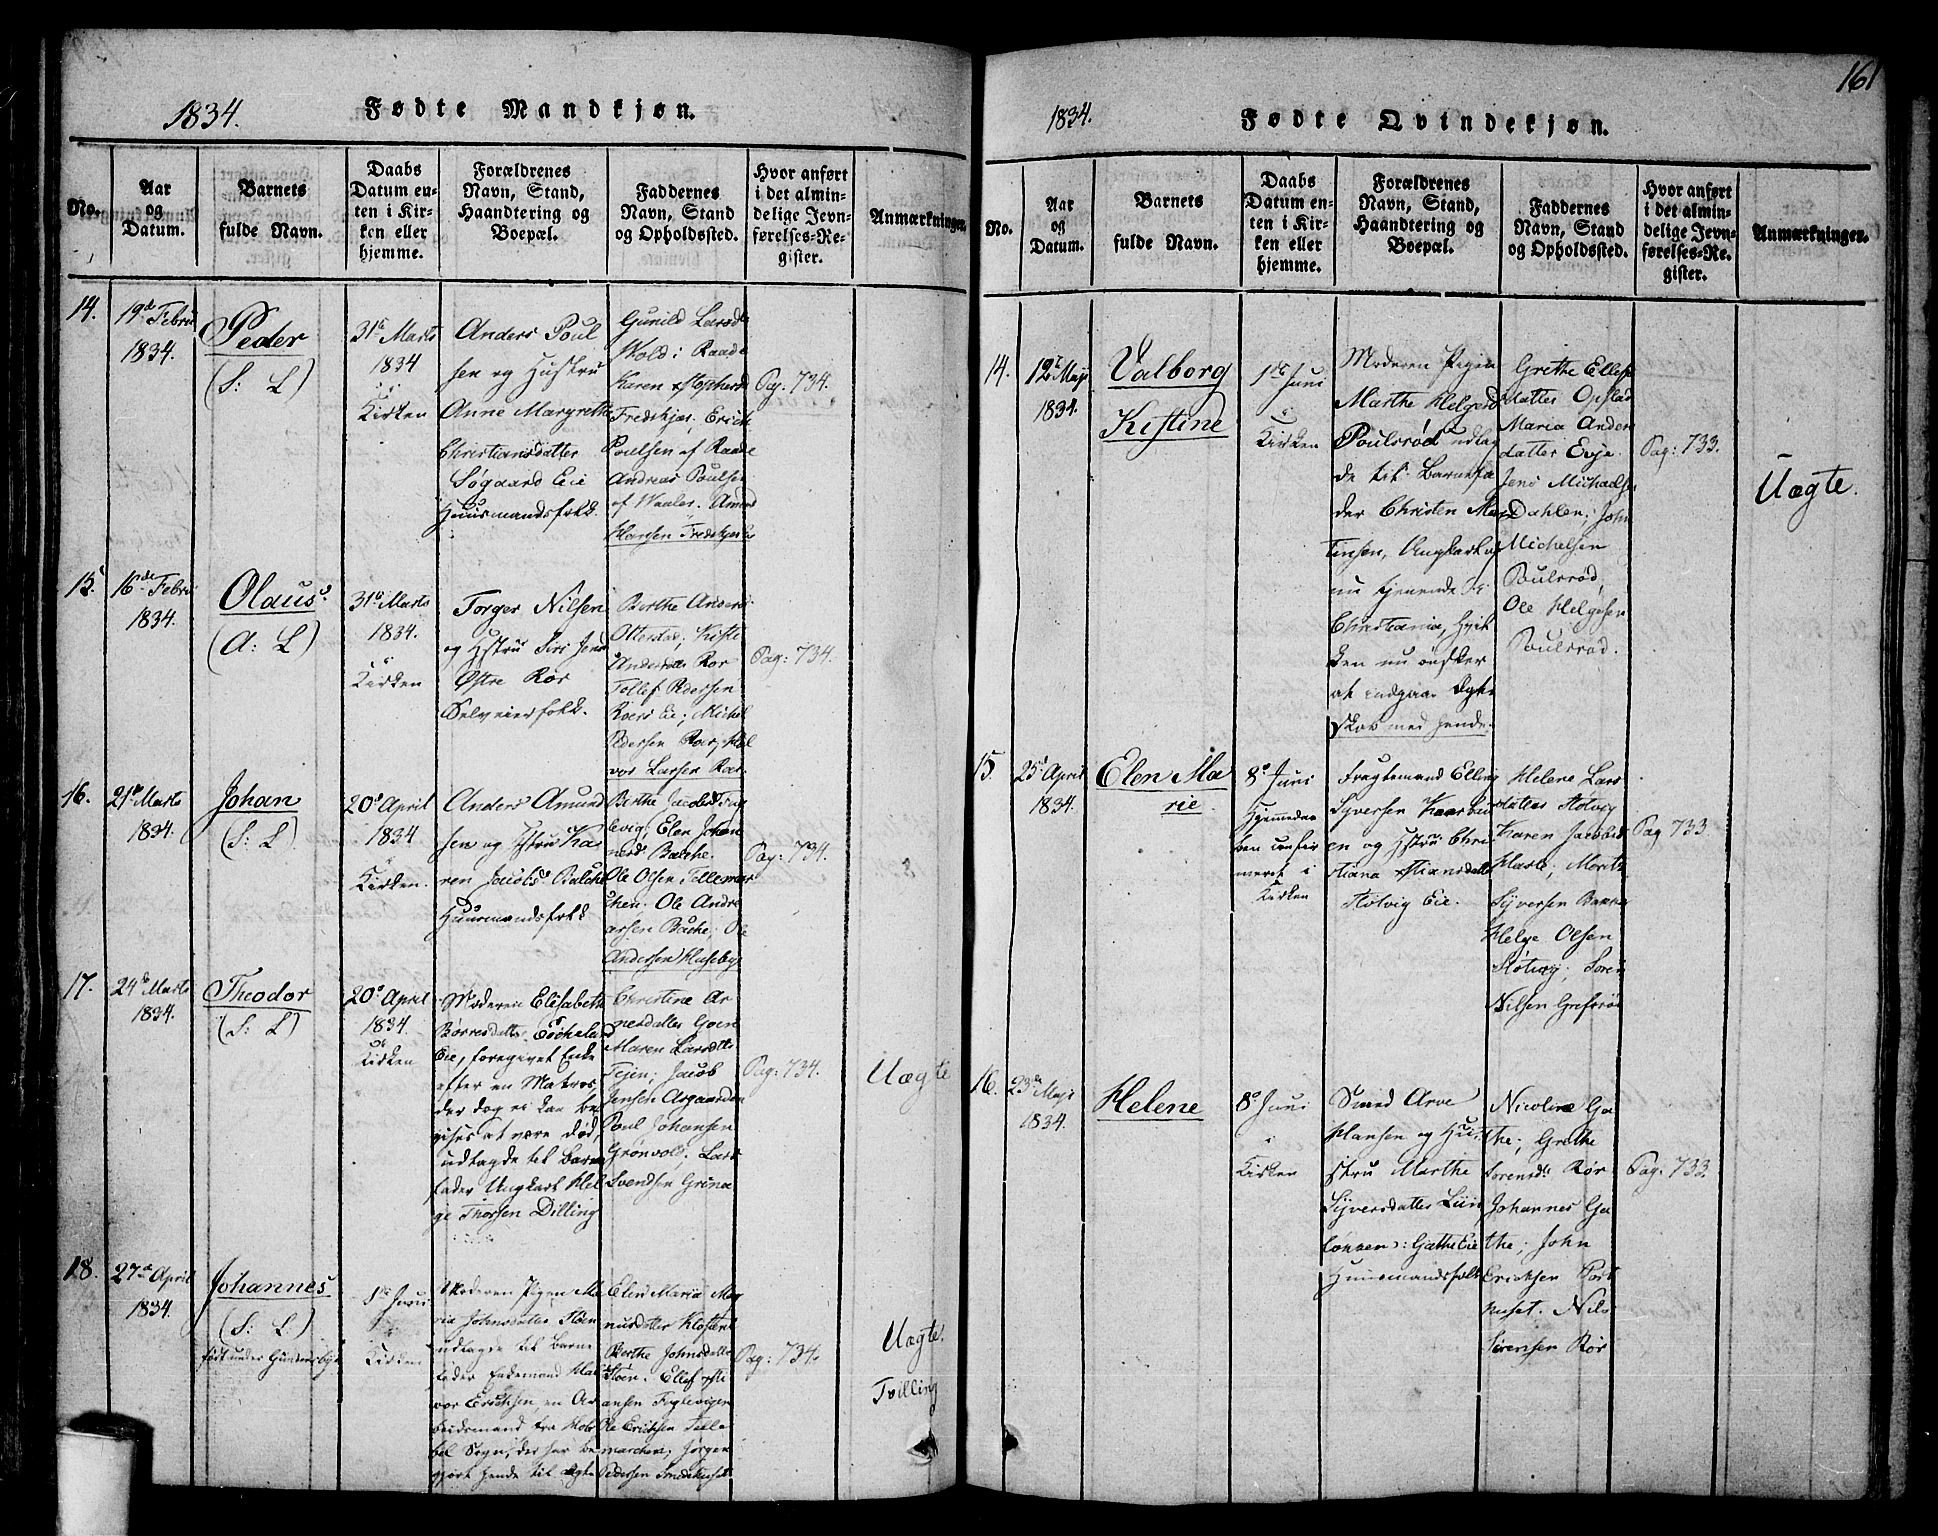 1834.
Fødte Mandkjøn.
No.
Aar
og
Datum.
Barnets
fulde Navn.
Daabs
Datum en-
ten i Kir-
ken eller
hjemme.
Forældrenes
Navn, Stand,
Haandtering og
Boepæl.
Faddernes
Navn, Stand
og Opholdssted.
Hvor anført
i det almin-
delige Jevn-
førelses-Re-
gister.
Anmærkninger.
14.
19de Febru
1834.
Peder
(S: L)
31te Marts
1834
i
Kirken
Anders Poul
sen og Hustru
Anne Margrethe
Christiansdatter
Søgaard Eie
Huusmandsfolk.
Gunild
Wold i Raade
Karen
Fredskjær; Erich
Poulsen af Raade
Andreas Poulsen
af Waaler. Amund
Hansen
Pag: 734.
15.
16de Febru
1834.
Olaus
(A: L)
31te Marts
1834.
i
Kirken
Torger Nilsen
og Hstru Siri Jens
Østre Rør
Selveierfolk.
Berthe Anders
Kirsti
Rør
Tollef Pedersen
Roers Eie; Michel
Pedersen Roer; Hal
vor Larsen Rør.
Pag: 734.
16.
21de Marts
1834.
Johan
(S: L)
20de April
1834
i
Kirken.
Anders Amund
sen og Hstru Ka
ren Jacobs Bakke
Huusmandsfolk
Berthe Jacobs
levig; Elen Johan
Bache.
Ole Olsen Tellemar
chen. Ole Andre
asen Bache; Ole
Andersen Huseby
Pag: 734.
17.
24de Marts
1834.
Theodor
(S: L)
20de April
1834
i
Kirken
Moderen Elisabeth
Børresdatter
Eie, foregivet Enke
efter en Matros,
der dog ei kan be
vises at være død,
udlagde til Barne
fader Ungkarl Hel
ge Thorsen Dilling
Christine Ar
nesdatter
Maren Larsdtr
Tejen; Jacob
Jensen Asgaarden
Poul Johansen
Grønvold; Lars
Svendsen Grina
Pag: 734.
Uægte
18.
27de April
1834
Johannes
(S: L)
født under
1ste Juni
i
Kirken
Moderen Pigen Ma
ria Johnsdatter Støen
udlagde til Barne
fader Enkemand Hal
vor Erichsen, en Ar
beidsmand fra Hob
bøl Sogn, der har be
gjort hende til Ægte
Elen Maria Mag
nusdatter Kloster
Berthe Johnsdatter
Støen. Ellef
ansen Fuglevigen
Ole Erichsen Telle
marchen; Jørgen
Pedersen
Pag: 734.
Uægte
Tvilling
161
1834.
Fødte Qvindekjøn.
No.
Aar
og
Datum.
Barnets
fulde Navn.
Daabs
Datum en-
ten i Kir-
ken eller
hjemme.
Forældrenes
Navn, Stand,
Haandtering og
Boepæl.
Faddernes
Navn, Stand
og Opholdssted.
Hvor anført
i det almin-
delige Jevn-
førelses-Re-
gister.
Anmærkninger.
14.
12te Maji
1834.
Valborg
Kistine
1ste Juni
i
Kirken
Moderen Pigen
Marthe Helgesd
Poulsrød udlag
de til Barnefa
der Christen Mar
tinsen, Ungkarl og
nu tjenende i
Christiania, hvil
ken nu ønsker
at indgaae Ægte
skab med hende.
Grethe Ellefs
datter Opstad
Maria Anders
datter Evje.
Jens Michaelsen
Dahlen; John
Michelsen
Poulsrød,
Ole Helgesen
Poulsrød.
Pag: 733.
Uægte.
15.
25de April
1834.
Elen Ma
rie.
8de Juni
Hjemmedø
ben confir
meret i
Kirken
Fragtemand Elling
Syversen
og Hstru Chri
stiana Stiansdatter
Støtvig Eie.
Helene Lars
datter Støtvig
Karen Jacobsd
Moritz
Syversen
Helge Olsen
Støtvig; Søren
Nilsen Grefsrød
Pag 733.
16.
23de Maji
1834.
Helene
8de Juni
i
Kirken
Smed Arve
Hansen og Hu
stru Marthe
Syversdatter Lun
løkken: Gathe Eie
Huusmandsfolk
Nicoline Ga
the; Grethe
Sørensdr Rør
Johannes Ga
the; John
Erichsen Port
huset. Nils
Sørensen Rør
Pag: 733.